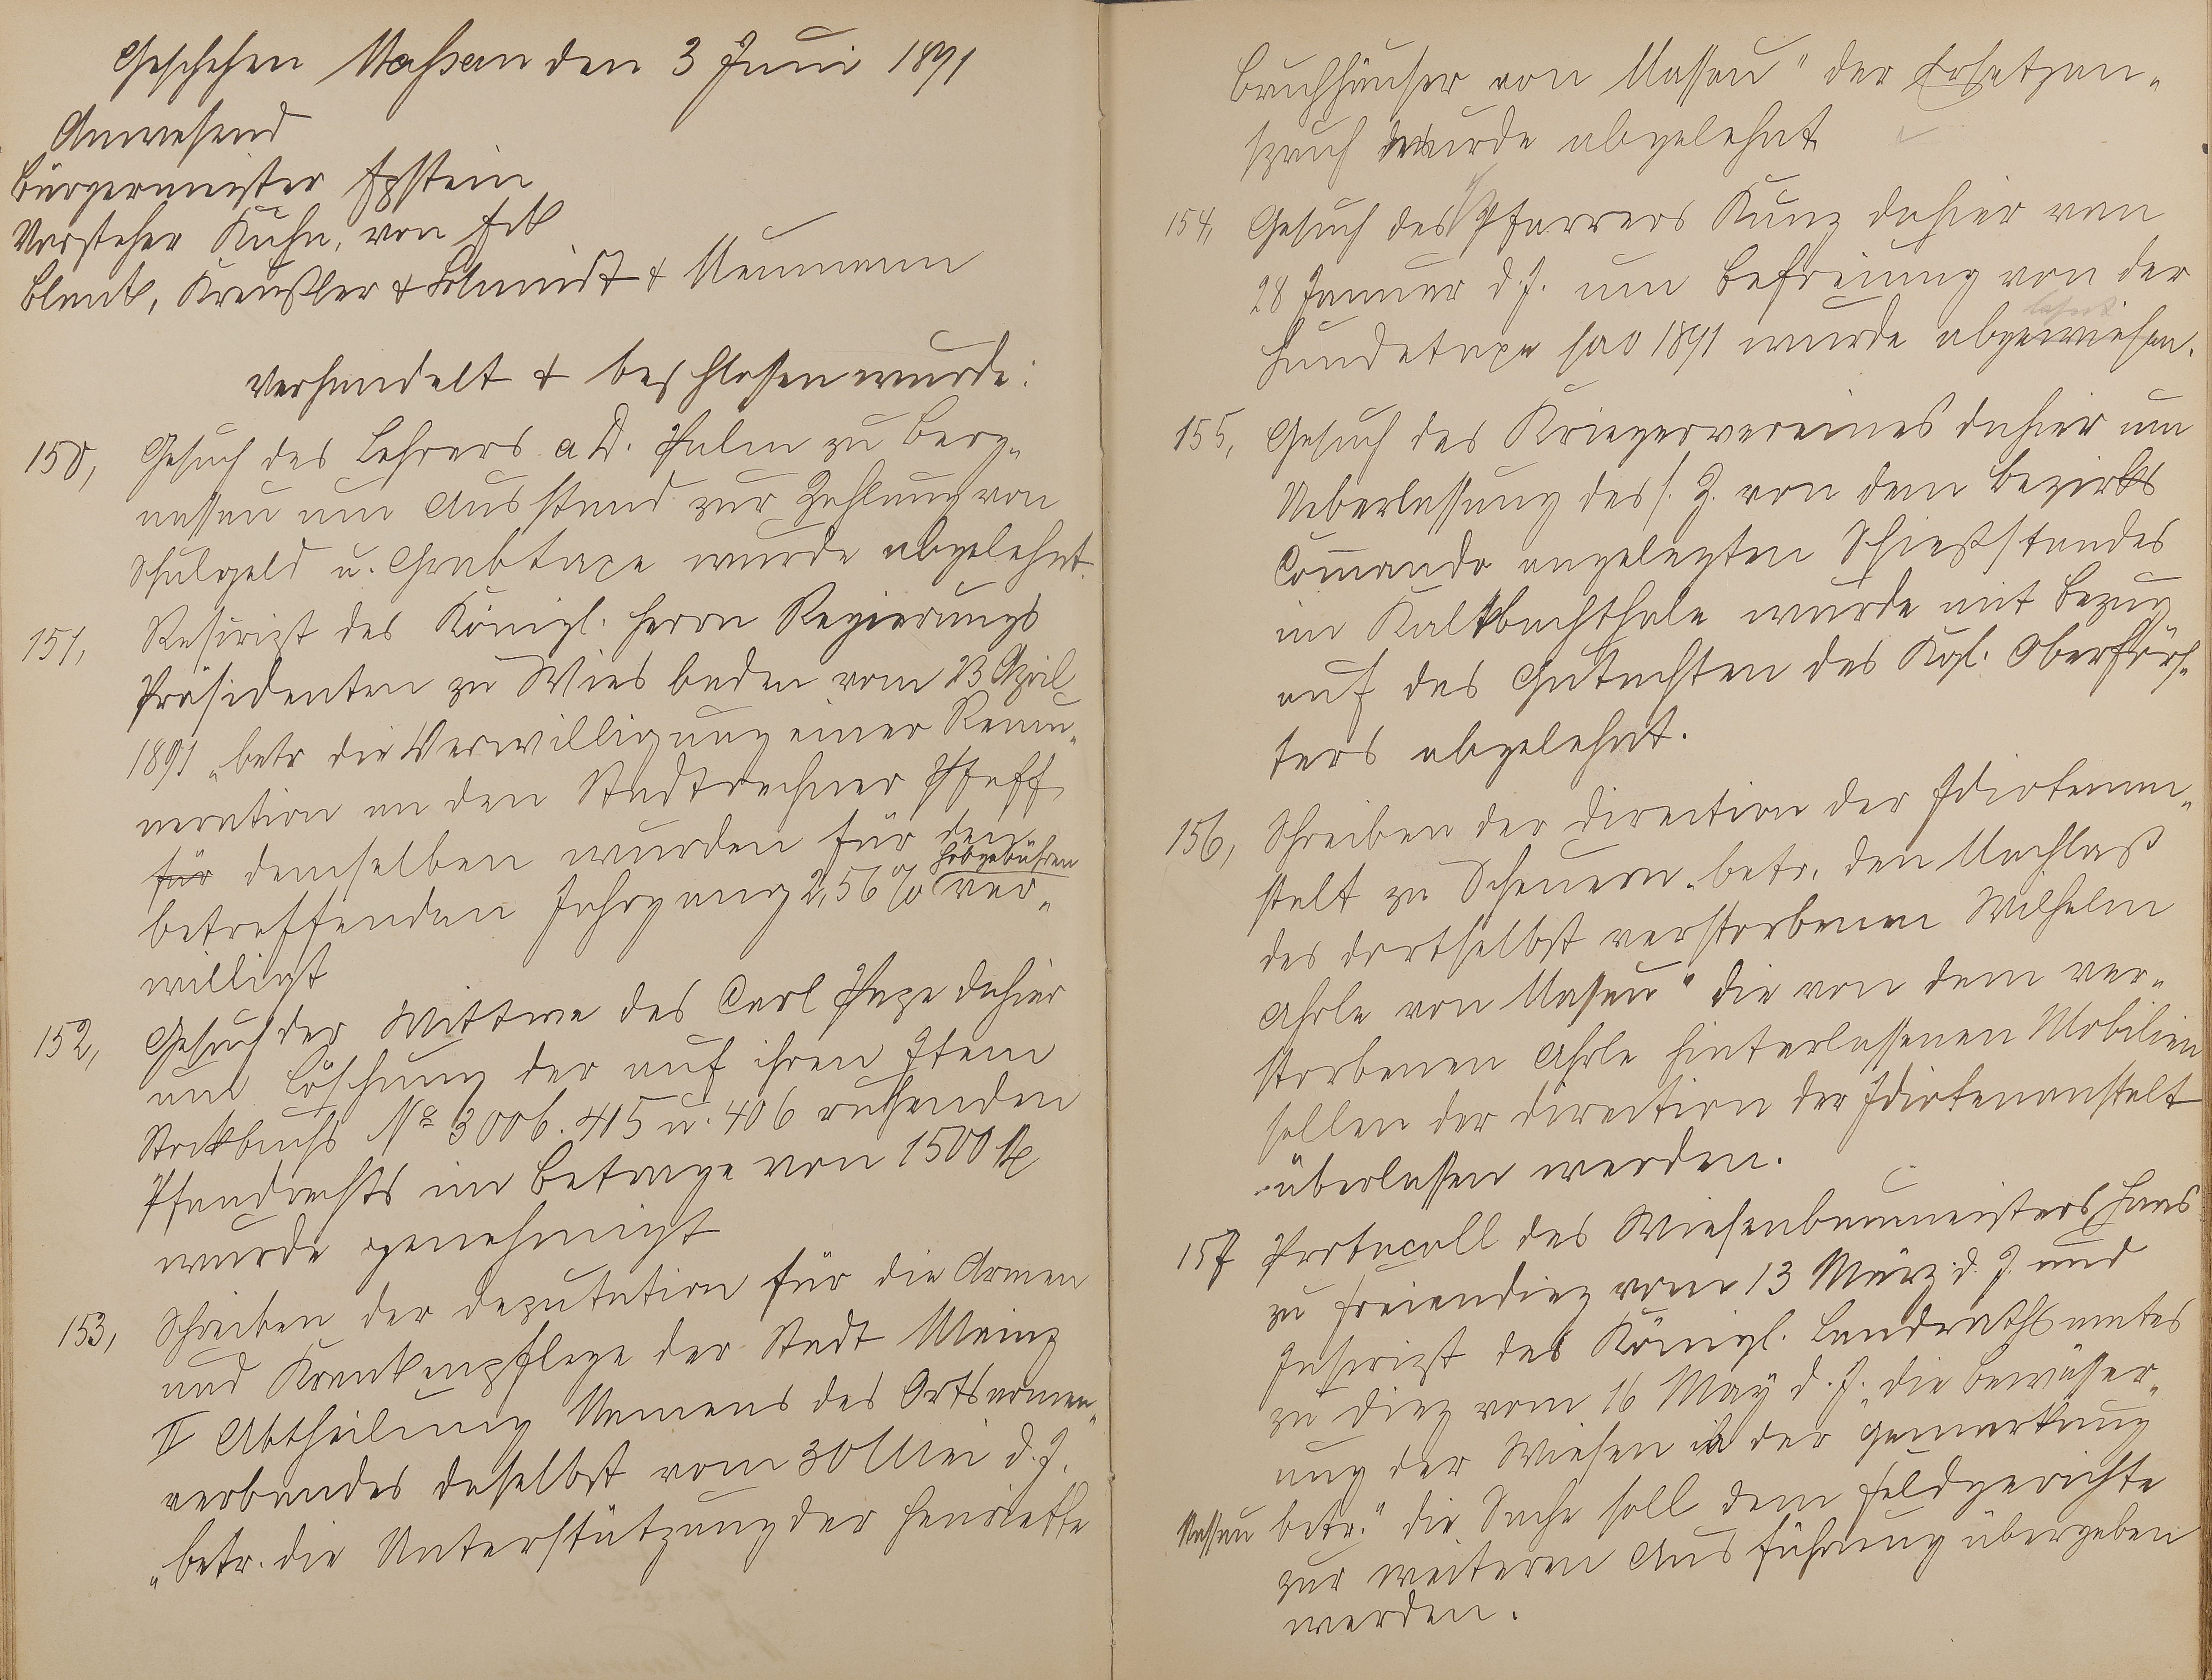 Geschehen Nassau den 3 Juni 1891
Anwesend
Bürgermeister Epstein
Vorsteher Kuhn, von Erb
Blank, Kreußler & Schmidt & Neumann
verhandelt & beschlossen wurde:
150, Gesuch des Lehrers a D. Palm zu Berg„
nassau um Ausstand zur Zahlung von
Schulgeld u. Grabtaxe wurde abgelehnt.
151, Rescript des Königl. Herrn Regierungs
Präsidenten zu Wiesbaden vom 23 April
1891 „betr die Verwilligung einer Remu„
neration an den Stadtrechner Pfaff
für demselben wurden für den
betreffenden Jahrgang 2,56 % Hebgebühren ver„
willigt
152, Gesuch der Wittwe des Carl Page dahier
um Löschung der auf ihren Item
Stockbuchs No 3006. 415 u. 406 ruhenden
Pfandrechts im Betrage von 1500 M
wurde genehmigt
153, Schreiben der Deputation für die Armen
und Krankenpflege der Stadt Mainz
II Abtheilung Namens des Ortsarmen„
verbandes daselbst vom 30 Mai d. J.
„betr. die Unterstützung der Henriette
Bruchhäuser von Nassau" der Ersatzan„
spruch wurde abgelehnt
154, Gesuch des Pfarrers Kunz dahier von
28 Januar d. J. um Befreiung von der
lehnt
Hundetaxe pro 1891 wurde abgewiesen.
155, Gesuch des Kriegervereines dahier um
Ueberlassung des s. Z. von dem Bezirks
Commando angelegten Schießstandes
im Kaltbachthale wurde mit Bezug
auf das Gutachten des Kgl. Oberförs„
ters abgelehnt.
156, Schreiben der Direction der Idiotenan„
stalt zu Scheuern „betr. den Nachlaß
des dortselbst verstorbenen Wilhelm
Ahrle von Nassau" die von dem ver„
storbenen Ahrle hinterlassenen Mobilien
sollen der Direction der Idiotenanstalt
überlassen werden.
157 Protocoll des Wiesenbaumeisters Haas
zu Freiendiez vom 13 März d. J. und
Inscript des Königl. Landrathsamtes
zu Diez vom 16 May d. J. „die Bewässer„
ung der Wiesen in der Gemarkung
Nassau betr." die Sache soll dem Feldgerichte
zur weiteren Ausführung übergeben
werden.